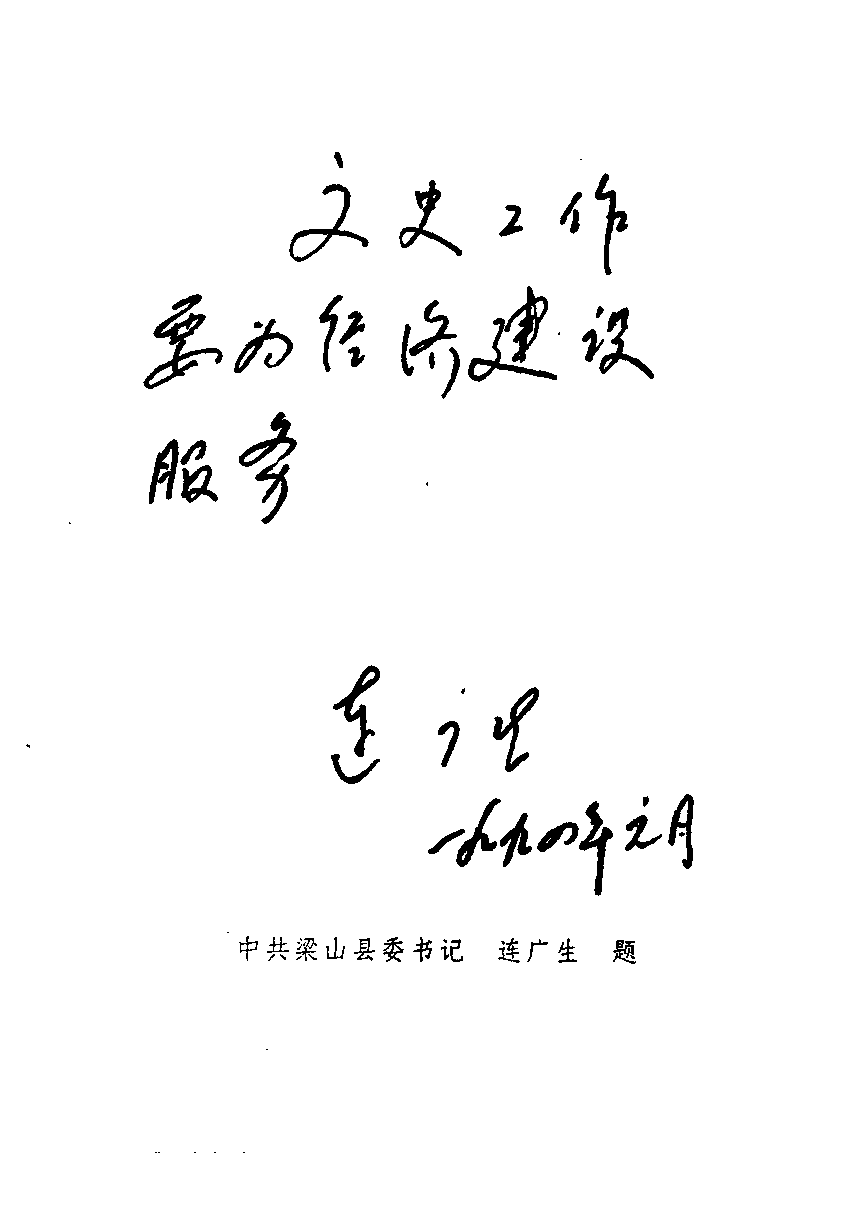 文史工作
要为经济建设
服务
连广生
一九九四年元月
中共梁山县委书记 连广生 题